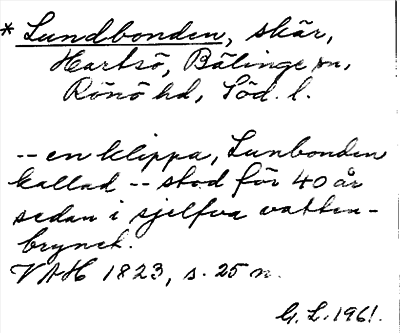 * Lundbonden, skär,
Hartsö, Bälinge sn,
Rönö hd, Söd. l.
-- en klippa, Lunbonden
kallad -- stod för 40 år
sedan i sjelfva vatten-
brynet.
VAH 1823, s. 25 n.
G. L. 1961.